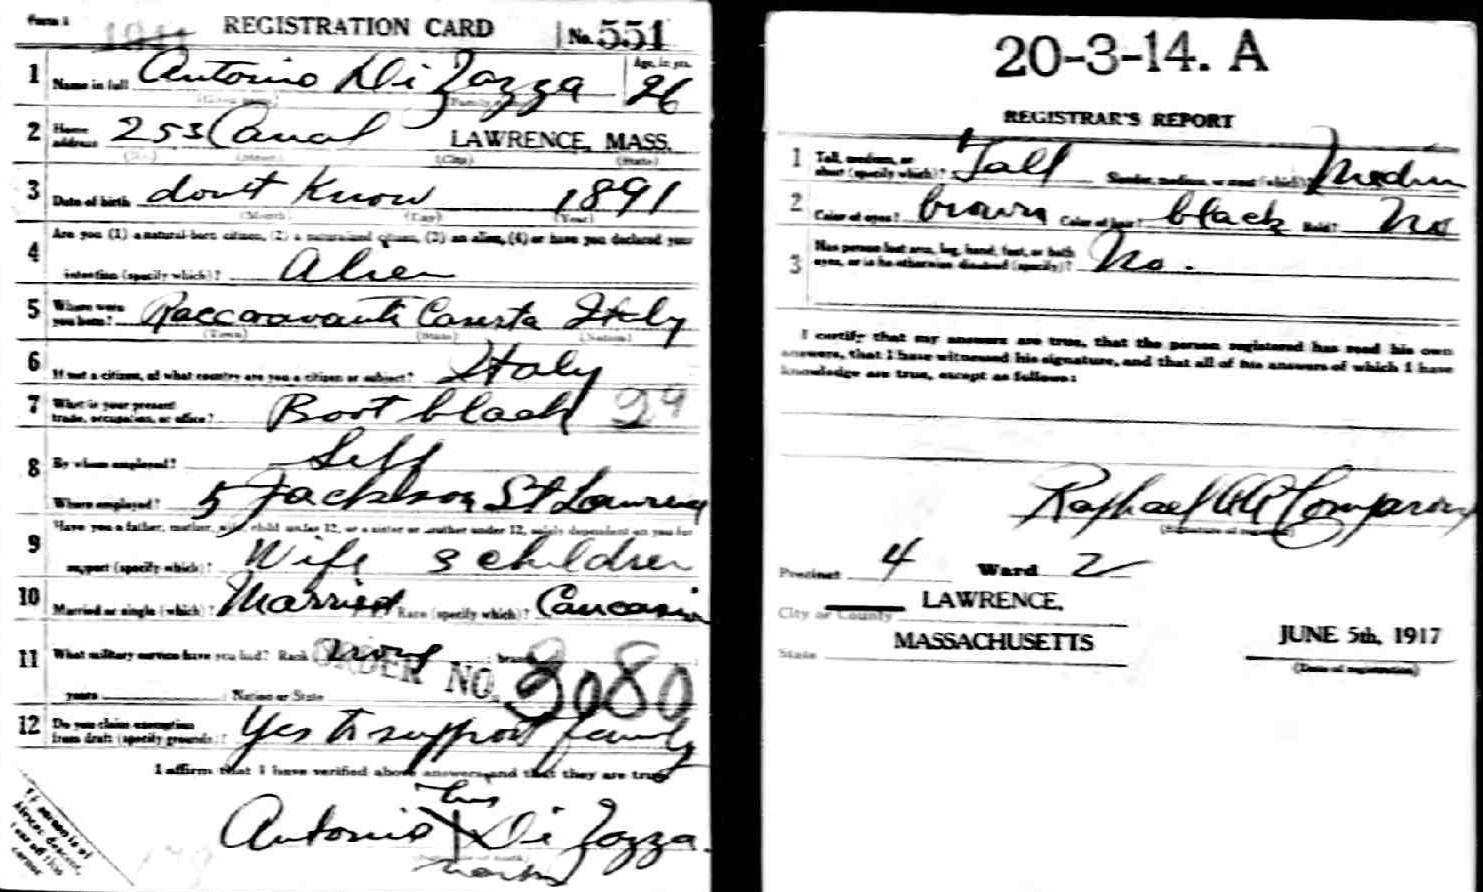 Form 1 REGISTRATION CARD No. 551
1 Name in full Antonio Di Zazza Age, in yrs. 26
(Given name) (Family name)
2 Home address 253 Canal LAWRENCE, MASS.
(No.) (Street) (City) (State)
3 Date of birth dont Know 1891
(Month) (Day) (Year)
4 Are you (1) a natural-born citizen, (2) a naturalized citizen, (3) an alien, (4) or have you declared your
intention (specify which)? Alien
5 Where were you born? Raccaravanti Caserta Italy
(Town) (State) (Nation)
6 If not a citizen, of what country are you a citizen or subject? Italy
7 What is your present trade, occupation, or office? Boot black 29
8 By whom employed? Self
Where employed? 5 Jackson St Lawrence
9 Have you a father, mother, wife, child under 12, or a sister or brother under 12, solely dependent on you for
support (specify which)? Wife 3 children
10 Married or single (which)? Married Race (specify which)? Caucasian
11 What military service have you had? Rank none ; branch
ORDER NO. 3080
years ; Nation or State
12 Do you claim exemption from draft (specify grounds)? Yes to support family
I affirm that I have verified above answers and that they are true.
his
Antonio X Di Zazza.
mark
If person is of African descent, tear off this corner
20-3-14. A
REGISTRAR'S REPORT
1 Tall, medium, or short (specify which)? Tall Slender, medium, or stout (which)? Medium
2 Color of eyes? brown Color of hair? black Bald? No
3 Has person lost arm, leg, hand, foot, or both eyes, or is he otherwise disabled (specify)? No.
I certify that my answers are true, that the person registered has read his own
answers, that I have witnessed his signature, and that all of his answers of which I have
knowledge are true, except as follows:
Raphael
(Signature of registrar)
Precinct 4 Ward 2
City or County LAWRENCE,
State MASSACHUSETTS JUNE 5th, 1917
(Date of registration)